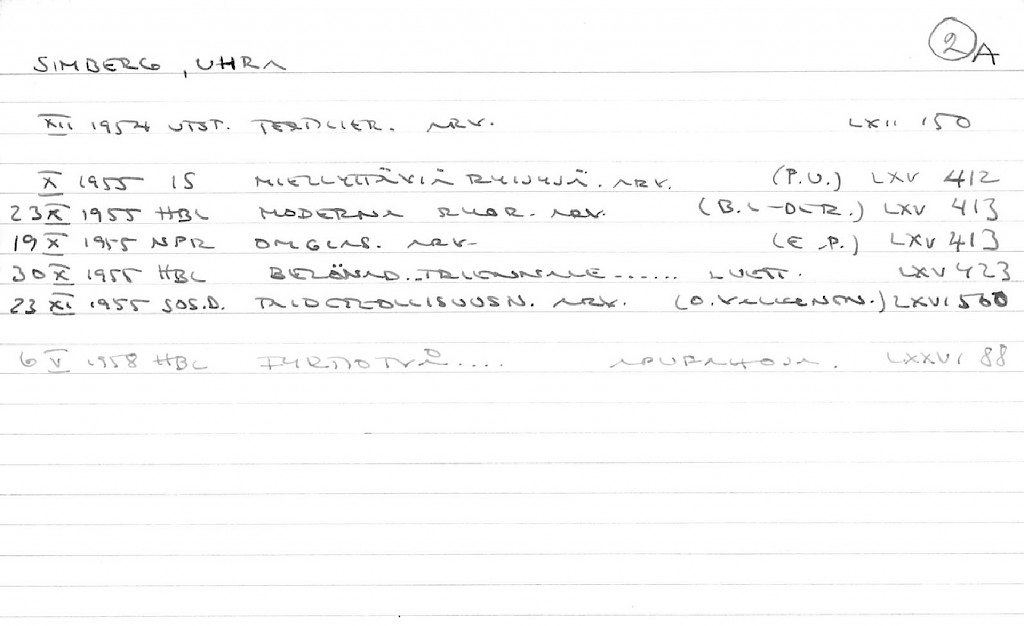 SIMBERG, UHRA 2 A
XII 1954 UTST. TEXTILIER. ARV. LXII 150
X 1955 IS MIELLYTTÄVIÄ RYIJYJÄ. ARV. (P.U.) LXV 412
23 X 1955 HBL MODERNA RYOR. ARV. (B. L-DER.) LXV 413
19 X 1955 NPR OMGÅNG. ARV. (E.P.) LXV 413
30 X 1955 HBL BELÖNAD. TRIENNALE...... LUETT. LXV 423
23 XI 1955 SOS.D. TAIDETEOLLISUUSN. ARV. (O. VALKONEN.) LXVI 500
6 V 1958 HBL FYRTIOTVÅ.... APURAHOJA. LXXVI 88